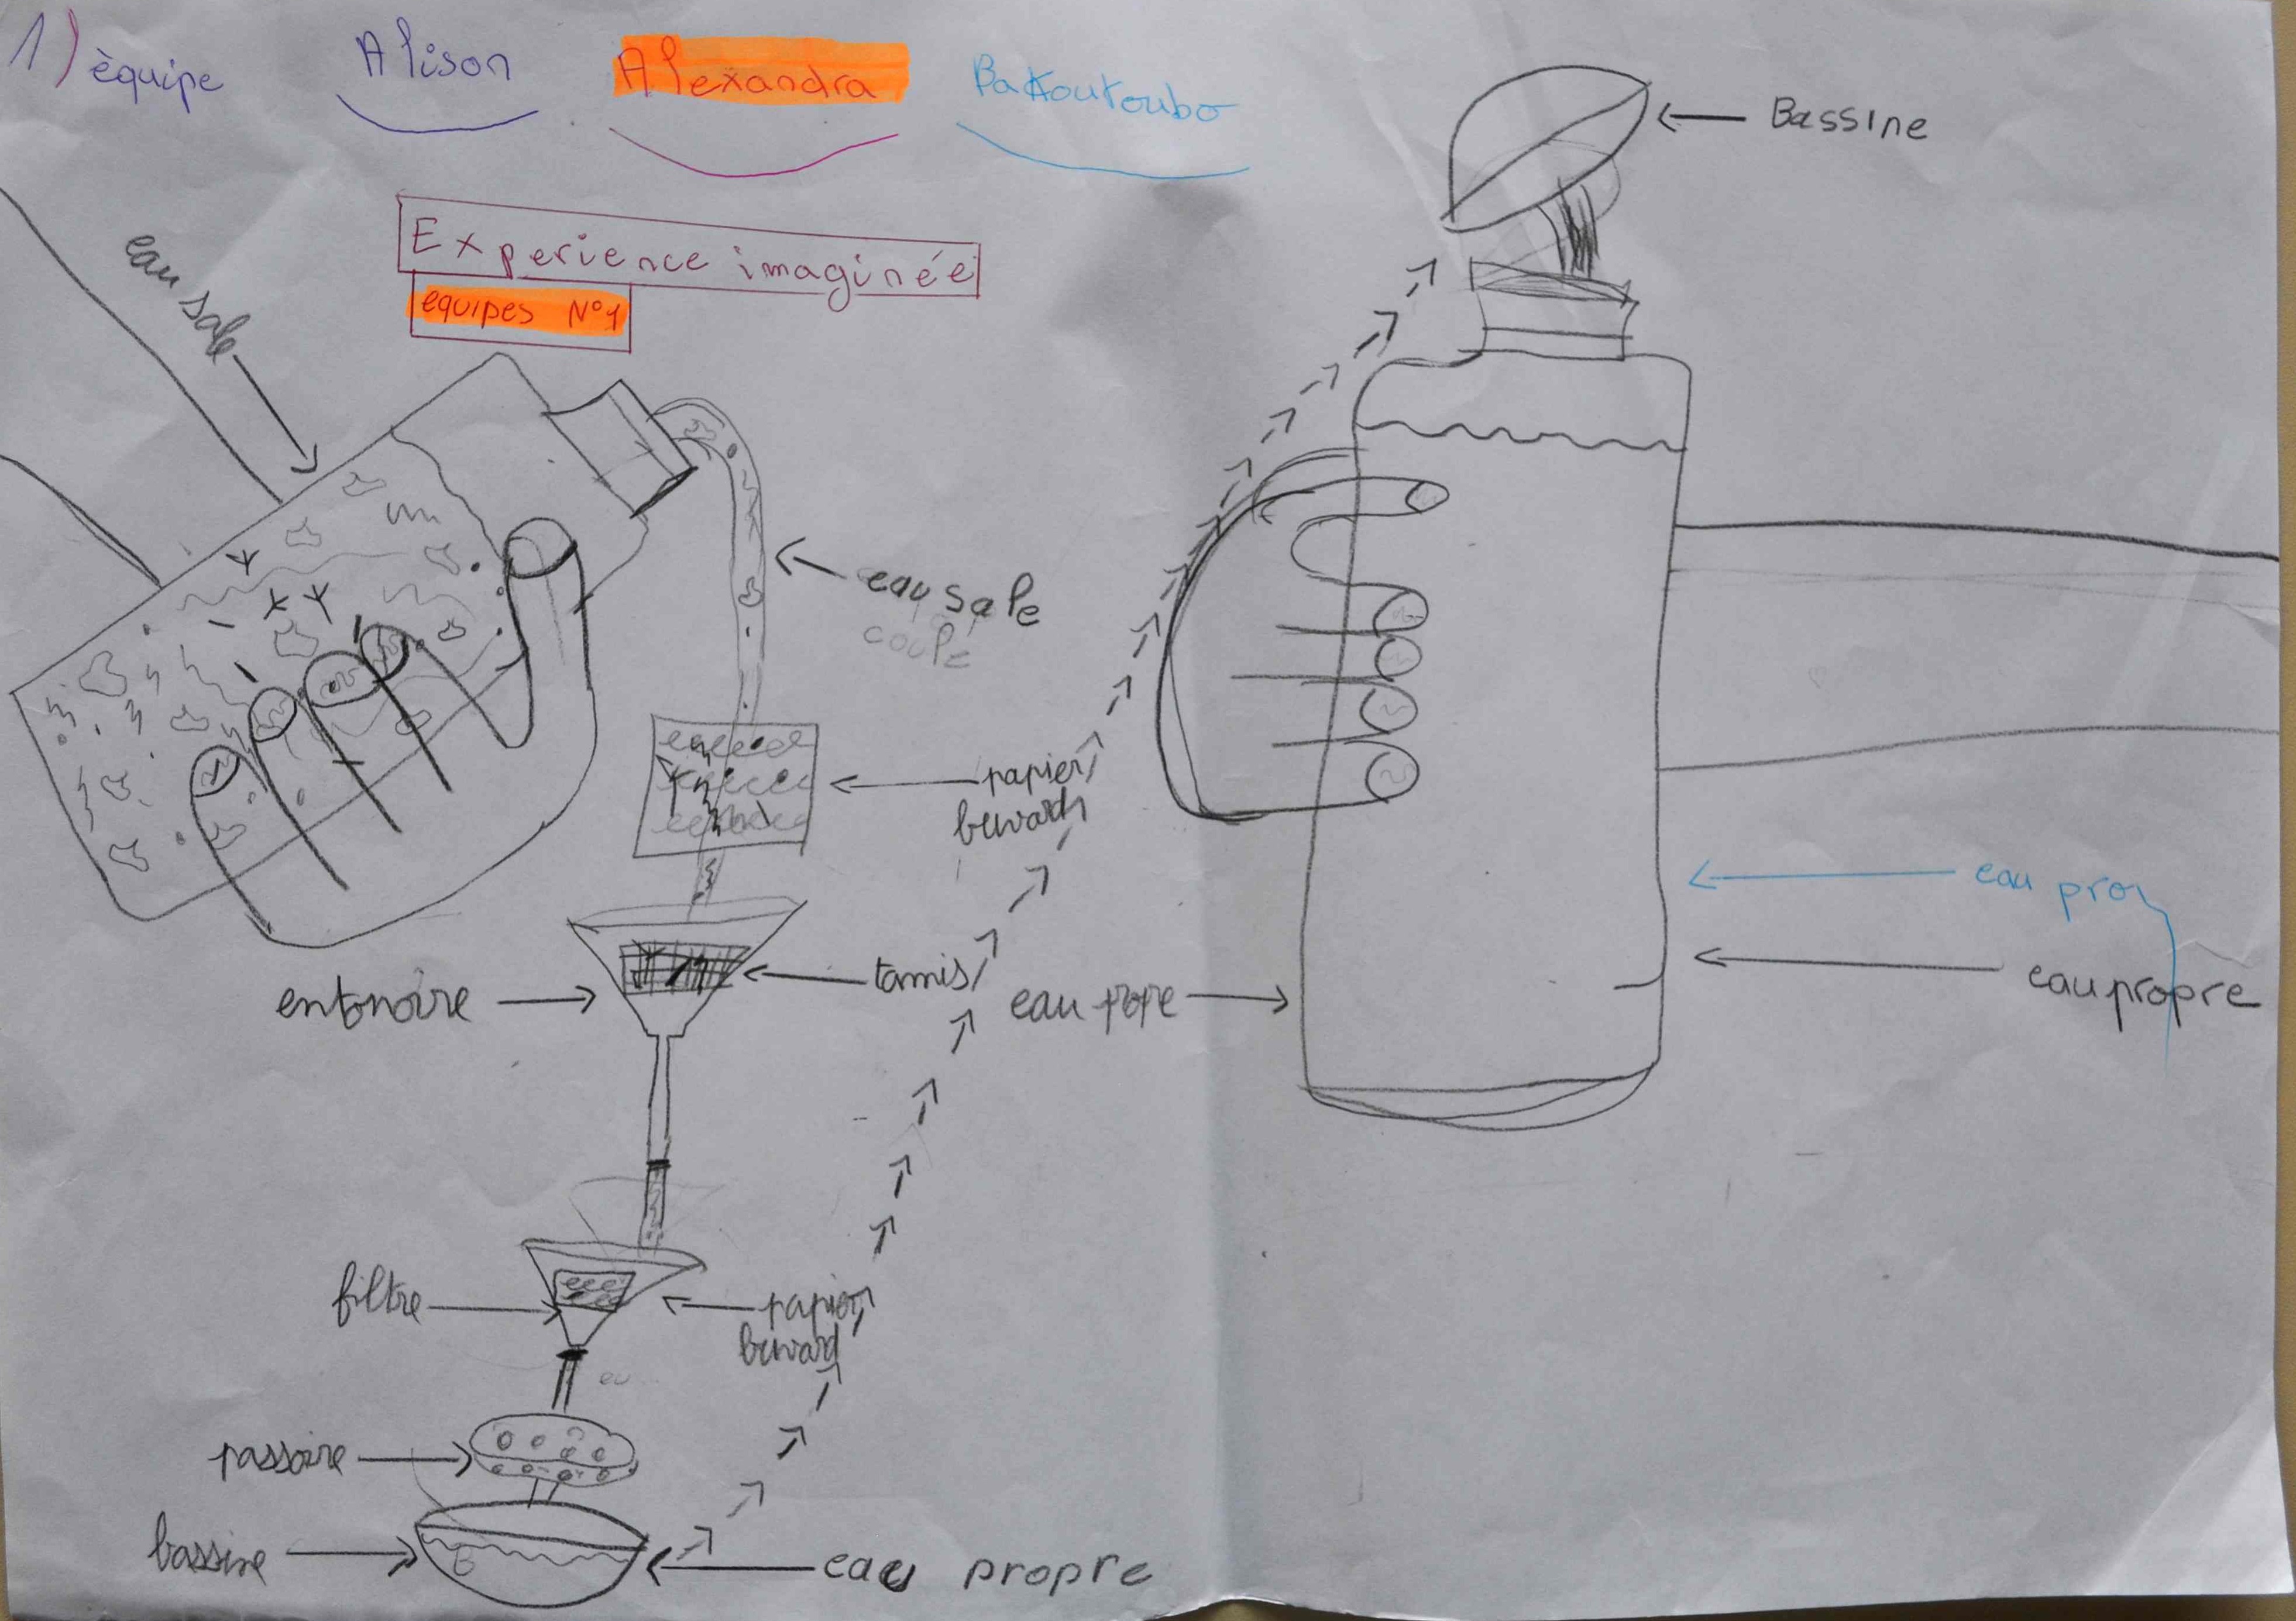 1) èquipe Alison Alexandra Bakoutoubo
Experience imaginée
equipes N°1
Bassine
eau sale
eau sale
coule
papier
buvard
tamis
entonoire
eau pope
eau pro
eau propre
filtre
papier
buvard
eu
passoire
bassine
eau propre